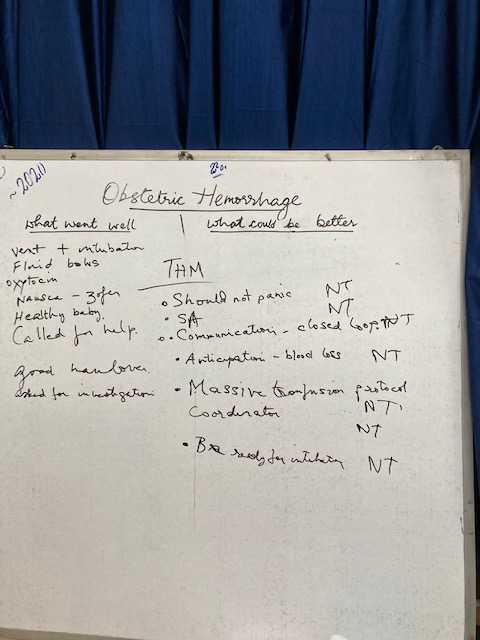 ~2021)
Obstetric Hemorrhage
what went well
what could be better
vent + intubation
Fluid bolus
oxytocin
Nausea - Zofer
Healthy baby.
Called for help.
Good handover.
asked for investigation
THM
• Should not panic NT
• SA NT
• Communication - closed loop NT
• Anticipation - blood loss NT
• Massive transfusion protocol
Coordinator NT
NT
• Be ready for intubation NT